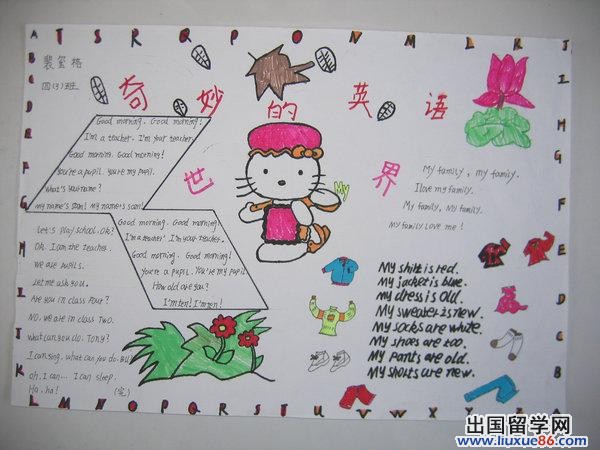 A T S R Q P O N M L K J
裴玺格
四(3)班
奇妙的英语
世界
Good morning. Good morning!
I'm a teacher. I'm your teacher.
Good morning. Good morning!
You're a pupil. you're my pupil.
What's your name?
My name's Sam! My name's Sam!
Good morning. Good morning!
I'm a teacher. I'm your teacher.
Good morning. Good morning!
You're a pupil. You're my pupil
How old are you?
I'm ten! I'm ten!
Let's play school. Ok?
Oh. I am the teacher.
We are pupils.
Let me ask you.
Are you in class Four?
No. we are in class Two.
What can you do. Tony?
I can sing. what can you do. Bill
oh. I can... I can sleep.
Ha. ha!
(完)
My
My family, my family.
I love my family.
My family, My family.
My family love me!
My shirt is red.
My jacket is blue.
My dress is old.
My sweater is new.
My socks are white.
My shoes are too.
My pants are old.
My shorts are new.
A B C D E F G H I J K
L M N O P Q R S T U V W X Y Z
J I H G F E D C B
出国留学网
www.liuxue86.com